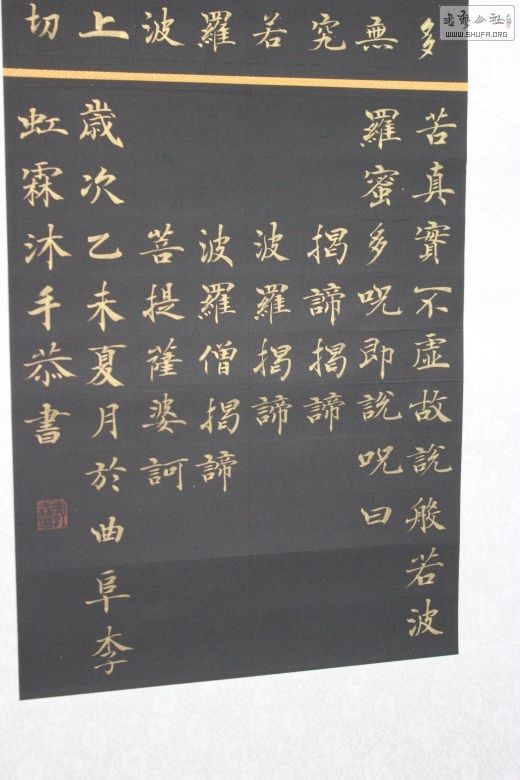 多
無
究
若
羅
波
上
切
苦真實不虛故說般若波
羅蜜多呪即說呪曰
揭諦揭諦
波羅揭諦
波羅僧揭諦
菩提薩婆訶
歲次乙未夏月於曲阜李
虹霖沐手恭書
書藝公社
WWW.SHUFA.ORG